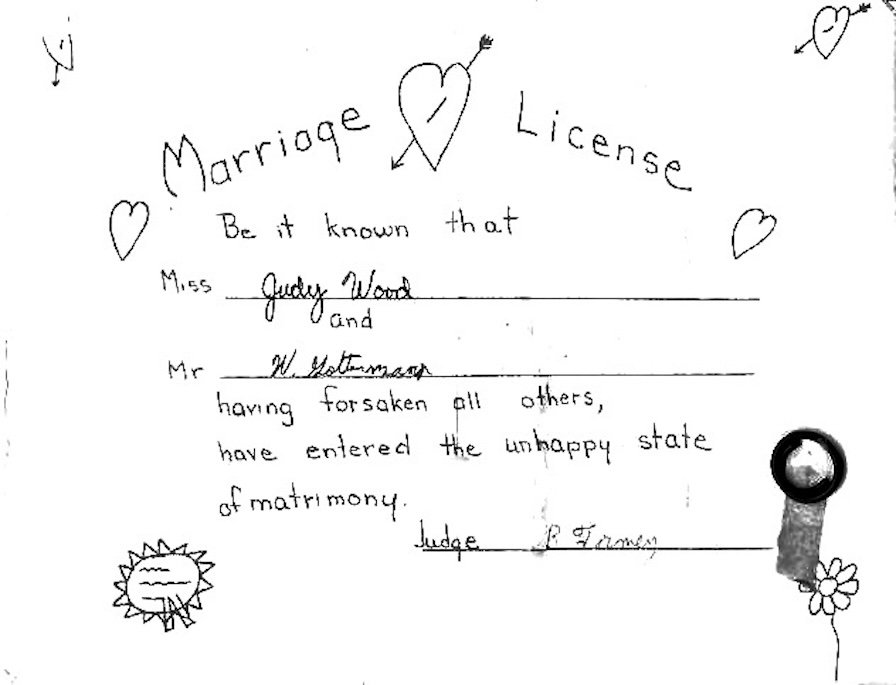 Marriage License
Be it known that
Miss Judy Wood
and
Mr W. Goltermann
having forsaken all others,
have entered the unhappy state
of matrimony.
Judge P.